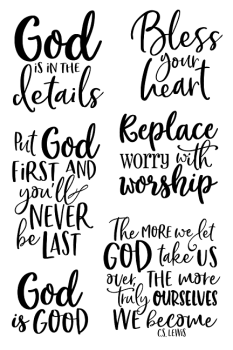 God
IS IN THE
details
Put God
FIRST AND
you'll
NEVER
be LAST
God
is GOOD
Bless
your
heart
Replace
worry with
worship
The MORE we let
GOD take US
over, THE more
truly OURSELVES
WE become
C.S. LEWIS